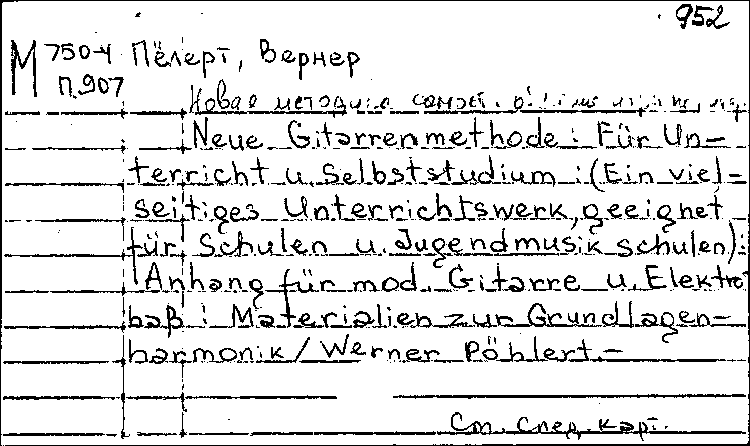 952
М 750-4 Пёлерт, Вернер
П.907
Новая методика самост.
Neue Gitarrenmethode: Für Un-
terricht u. Selbststudium :(Ein viel-
seitiges Unterrichtswerk, geeignet
für Schulen u. Jugendmusikschulen):
Anhang für mod. Gitarre u. Elektro
baß : Materialien zur Grundlagen-
harmonik / Werner Pöhlert.-
См. след. карт.